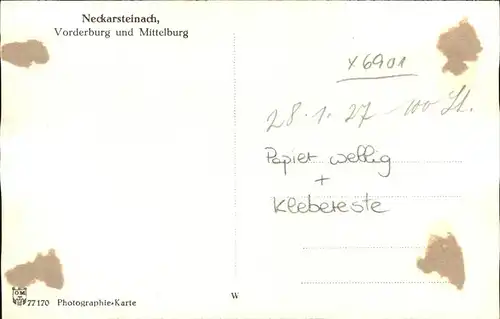 Neckarsteinach,
Vorderburg und Mittelburg
x 6901
28.1.27 - 100 St.
Papier wellig
+
Klebereste
77170 Photographie-Karte
W